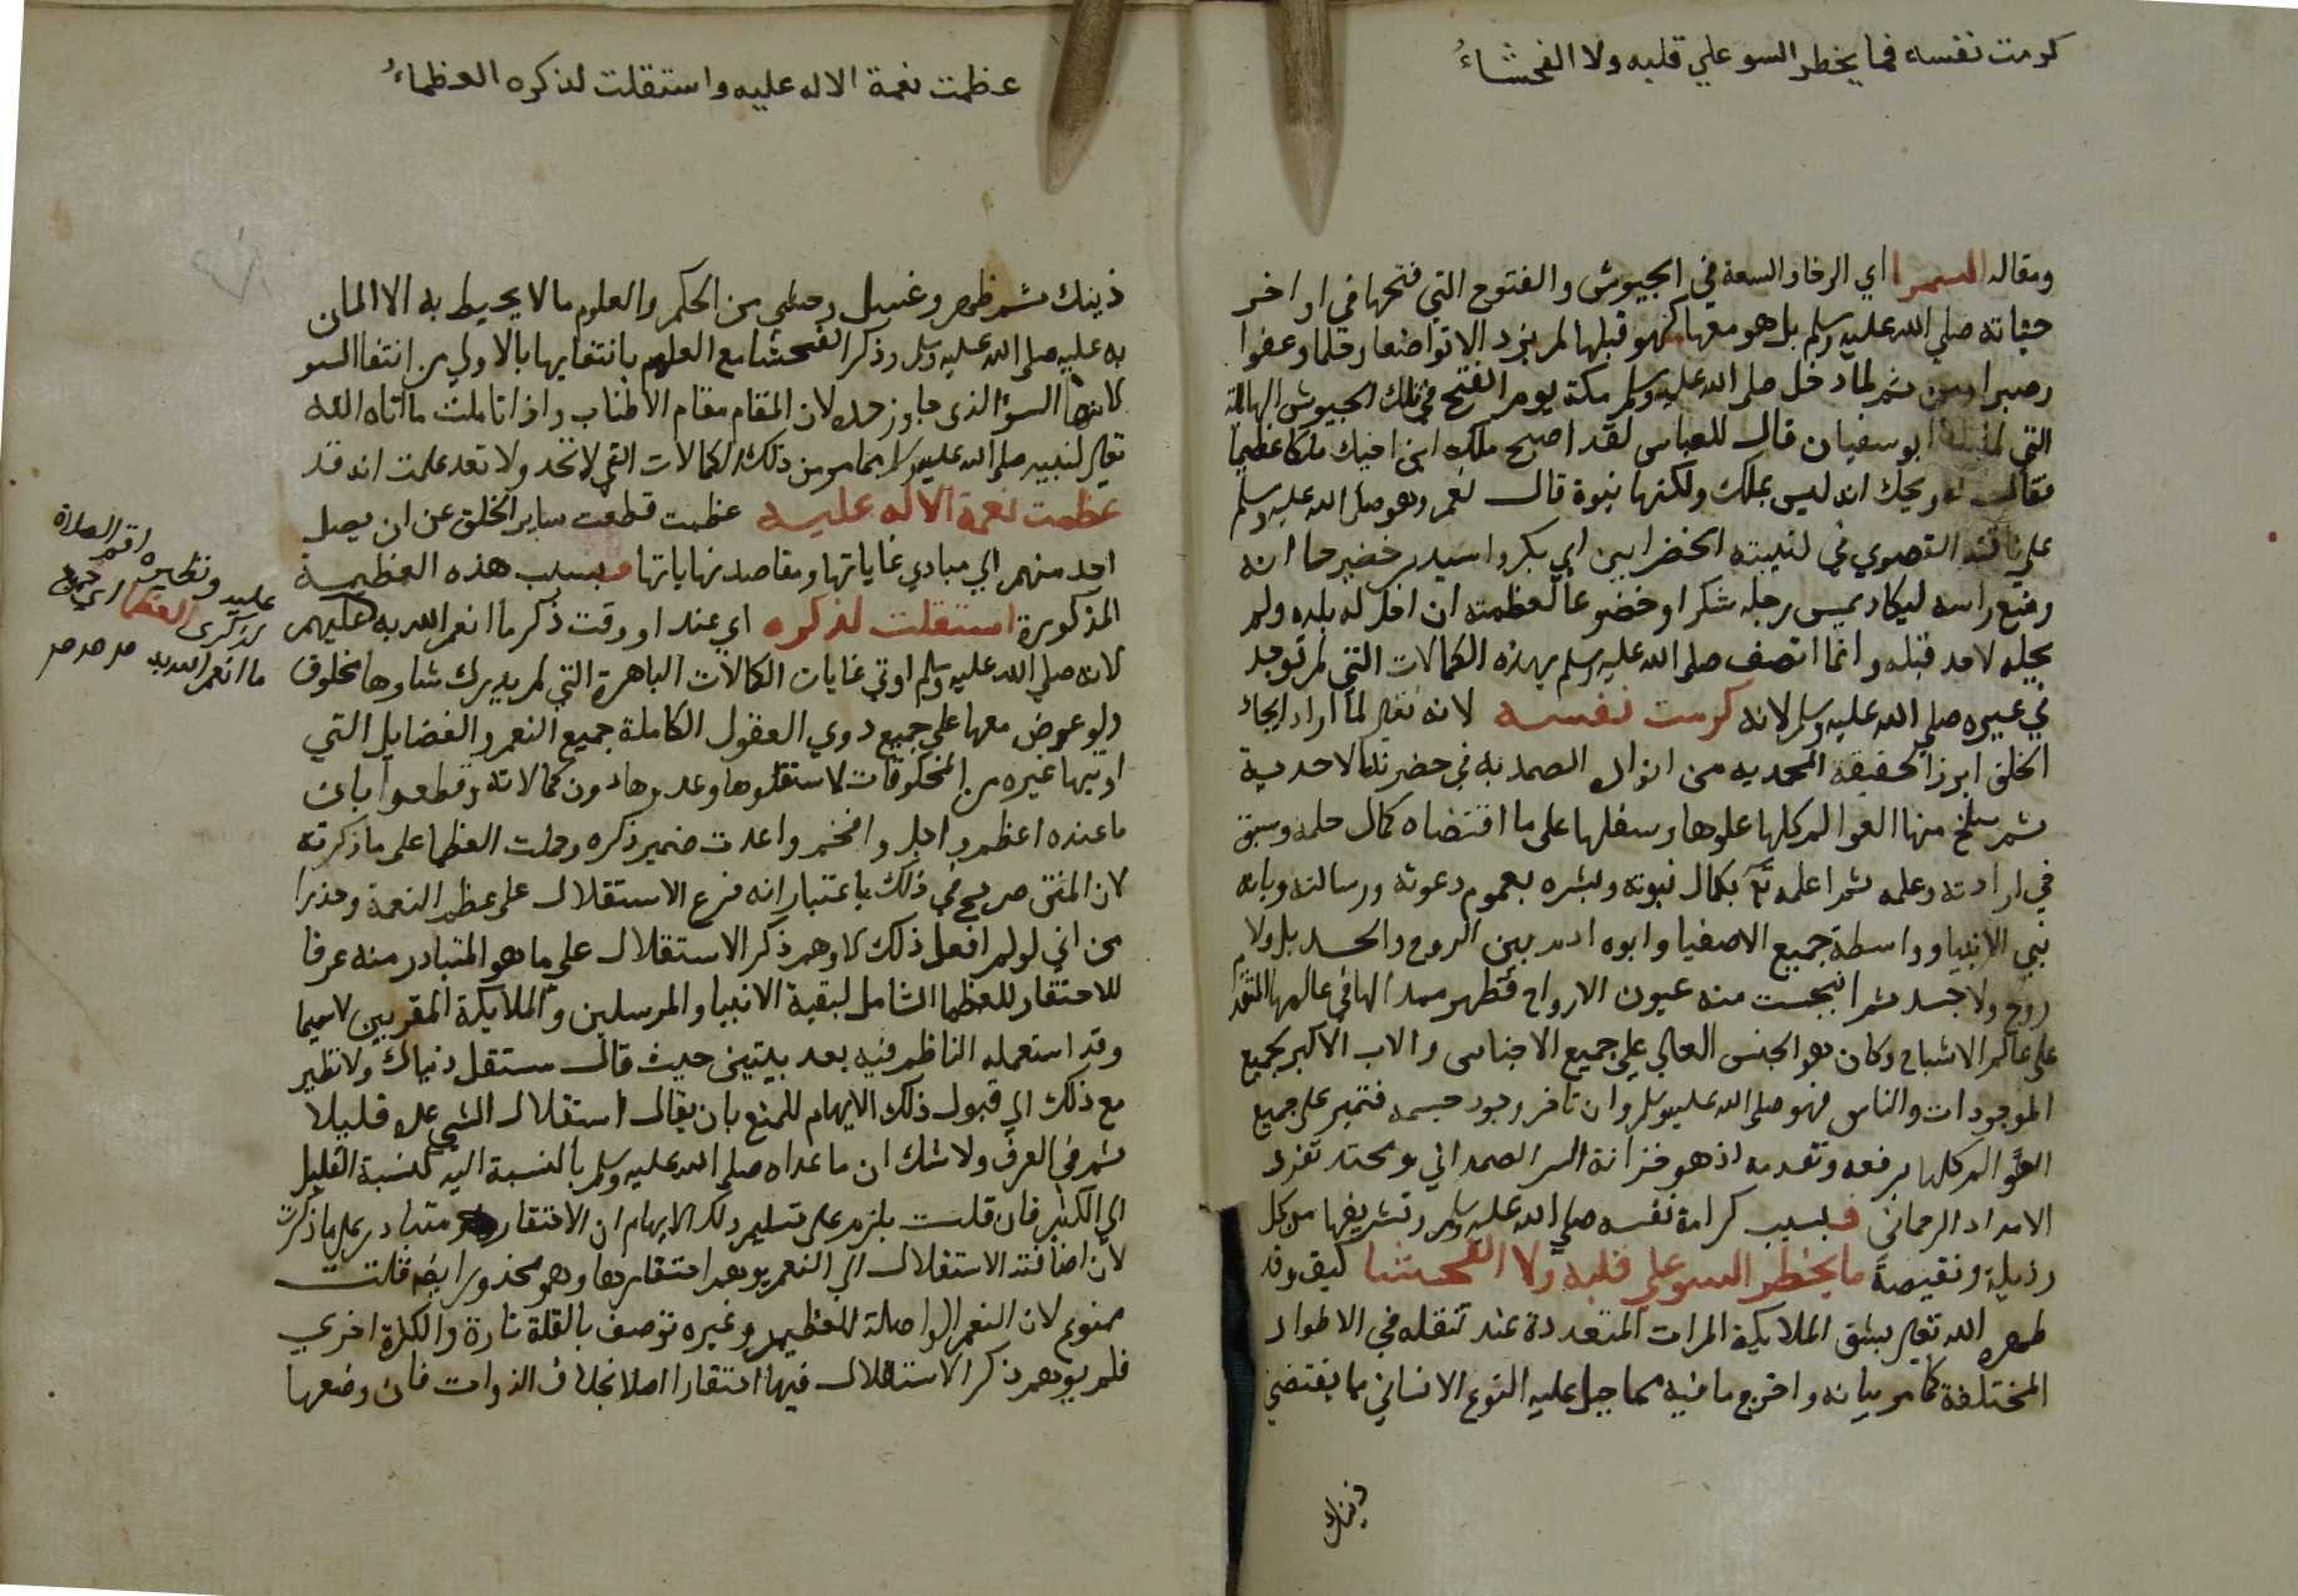 كرمت نفسه فما يخطر السو علي قلبه ولا الفحشاءُ
ومقاله السرا اي الرخا والسعة في الجيوش والفتوح التي فتحها في اواخر
حياته صلي الله عليه وسلم بل هو معها كهو قبلها لم يزد الا تواضعا وحلما وعفوا
وصبرا ومن ثم لما دخل صلي الله عليه وسلم مكة يوم الفتح في تلك الجيوش الهائلة
التي ابو سفيان قال للعباس لقد اصبح ملك ابن اخيك ملكا عظيما
فقال له ويحك انه ليس بملك ولكنها نبوة قال نعم وهو صلي الله عليه وسلم
علي ناقته القصوي في كتيبته الخضرا بين ابي بكر واسيد بن حضير حاا انه
وضع راسه ليكاد يمس رحله شكرا وخضوعا لعظمته ان احل له بلده ولم
يحله لاحد قبله وانما اتصف صلي الله عليه وسلم بهذه الكمالات التي لم توجد
في غيره صلي الله عليه وسلم لانه كرمت نفسه لانه تعالي لما اراد ايجاد
الخلق ابرز الحقيقة المحمديه من انوار الصمديه في حضرته الاحدية
ثم سلخ منها العوالم كلها علوها وسفلها علي ما اقتضاه كمال حكمه وسبق
في ارادته وعلمه ثم اعلمه تعالي بكمال نبوته وبشره بعموم دعوته ورسالته وبانه
نبي الانبيا وواسطة جميع الاصفيا وابوه ادم بين الروح والجسد بل ولا
روح ولا جسد ثم انبجست منه عيون الارواح فظهر ممدا لها في عالمها المتقدم
علي عالم الاشباح وكان هو الجنس العالي علي جميع الاجناس والاب الاكبر لجميع
الموجودات والناس فهو صلي الله عليه وسلم وان تاخر وجود جسمه فتميز علي جميع
العوالم كلها برفعه وتقدمه اذ هو خزانة السر الصمداني ومحتد تفرد
الامداد الرحماني فبسبب كرامة نفسه صلي الله عليه وسلم وتشريفها من كل
رذيلة ونقيصة ما يخطر السو علي قلبه ولا الفحشا كيف وقد
طهره الله تعالي بشق الملايكة المرات المتعددة عند تنقله في الاطوار
المختلفة كما مر بيانه واخرج ما فيه مما جبل عليه النوع الانساني مما يقتضي
ذينك
عظمت نعمة الاله عليه واستقلت لذكره العظماءُ
ذينك ثم ظهر وغسل وحشي من الحكم والعلوم ما لا يحيط به الا المان
به عليه صلي الله عليه وسلم وذكر الفحشا مع العلم بانتفايها بالاولي من انتفا السو
لانها السؤ الذي جاوز حده لان المقام مقام الاطناب واذا تاملت ما اتاه الله
تعالي لنبيه صلي الله عليه وسلم مما مر من تلك الكمالات التي لا تحد ولا تعد علمت انه قد
عظمت نعمة الاله عليه عظمت قطعت ساير الخلق عن ان يصل
احد منهم الي مبادي غاياتها ومقاصد نهاياتها فبسبب هذه العظيمة
المذكورة استقلت لذكره اي عند او وقت ذكر ما انعم الله به عليهم
لانه صلي الله عليه وسلم اوتي غايات الكمالات الباهرة التي لم يدرك شاوها مخلوق
ولو عرض معها علي جميع ذوي العقول الكاملة جميع النعم والفضايل التي
اوتيها غيره من المخلوقات لاستقلوها وعدوها دون كمالاته وقطعوا بان
ما عنده اعظم واجل وافخم واعدت ضمير ذكره وحملت العظما علي ما ذكرته
لان المتن صريح في ذلك باعتبار انه فرع الاستقلال علي عظم النعمة وحذرا
من اني لو لم افعل ذلك لاوهم ذكر الاستقلال علي ما هو المتبادر منه عرفا
للاحتقار للعظما الشامل لبقية الانبيا والمرسلين والملايكة المقربين لاسيما
وقد استعمله الناظم فيه بعد بيتين حيث قال مستقل دنياك ولا نظير
مع ذلك الي قبول ذلك الايهام للمنع بان يقال استقلال الشي عده قليلا
ثم في العرف ولا شك ان ما عداه صلي الله عليه وسلم بالنسبة اليه كنسبة القليل
الي الكثير فان قلت يلزم علي تسليم ذلك الايهام ان الاحتقار متبادر علي ما ذكرت
لان اضافته الاستقلال الي النعم يوهم احتقارها وهو محذور ايضا قلت
ممنوع لان النعم الواصلة للعظيم وغيره توصف بالقلة تارة والكثرة اخري
فلم يوهم ذكر الاستقلال فيها احتقارا اصلا بخلاف الذوات فان وصفها
عليه ونظيره اقم الصلاة
لذكري العظما اي جميع
ما انعم الله به